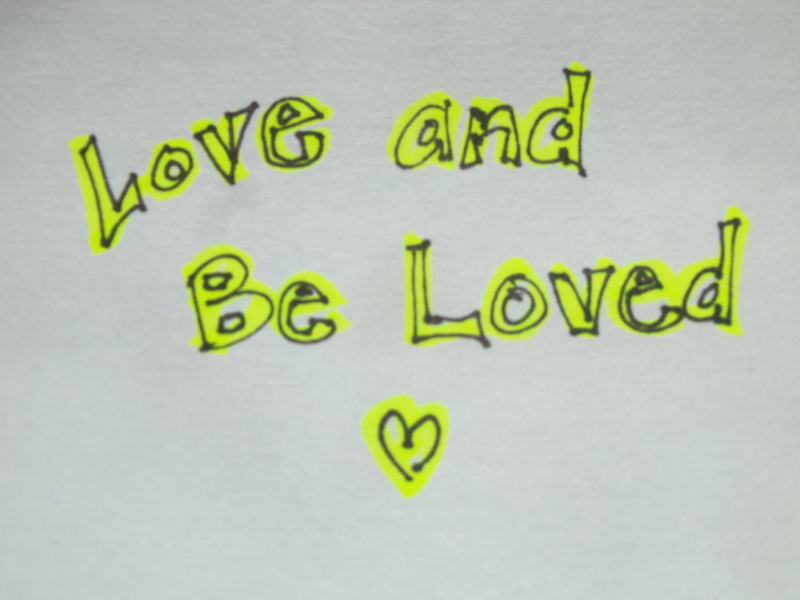 Love and
Be Loved